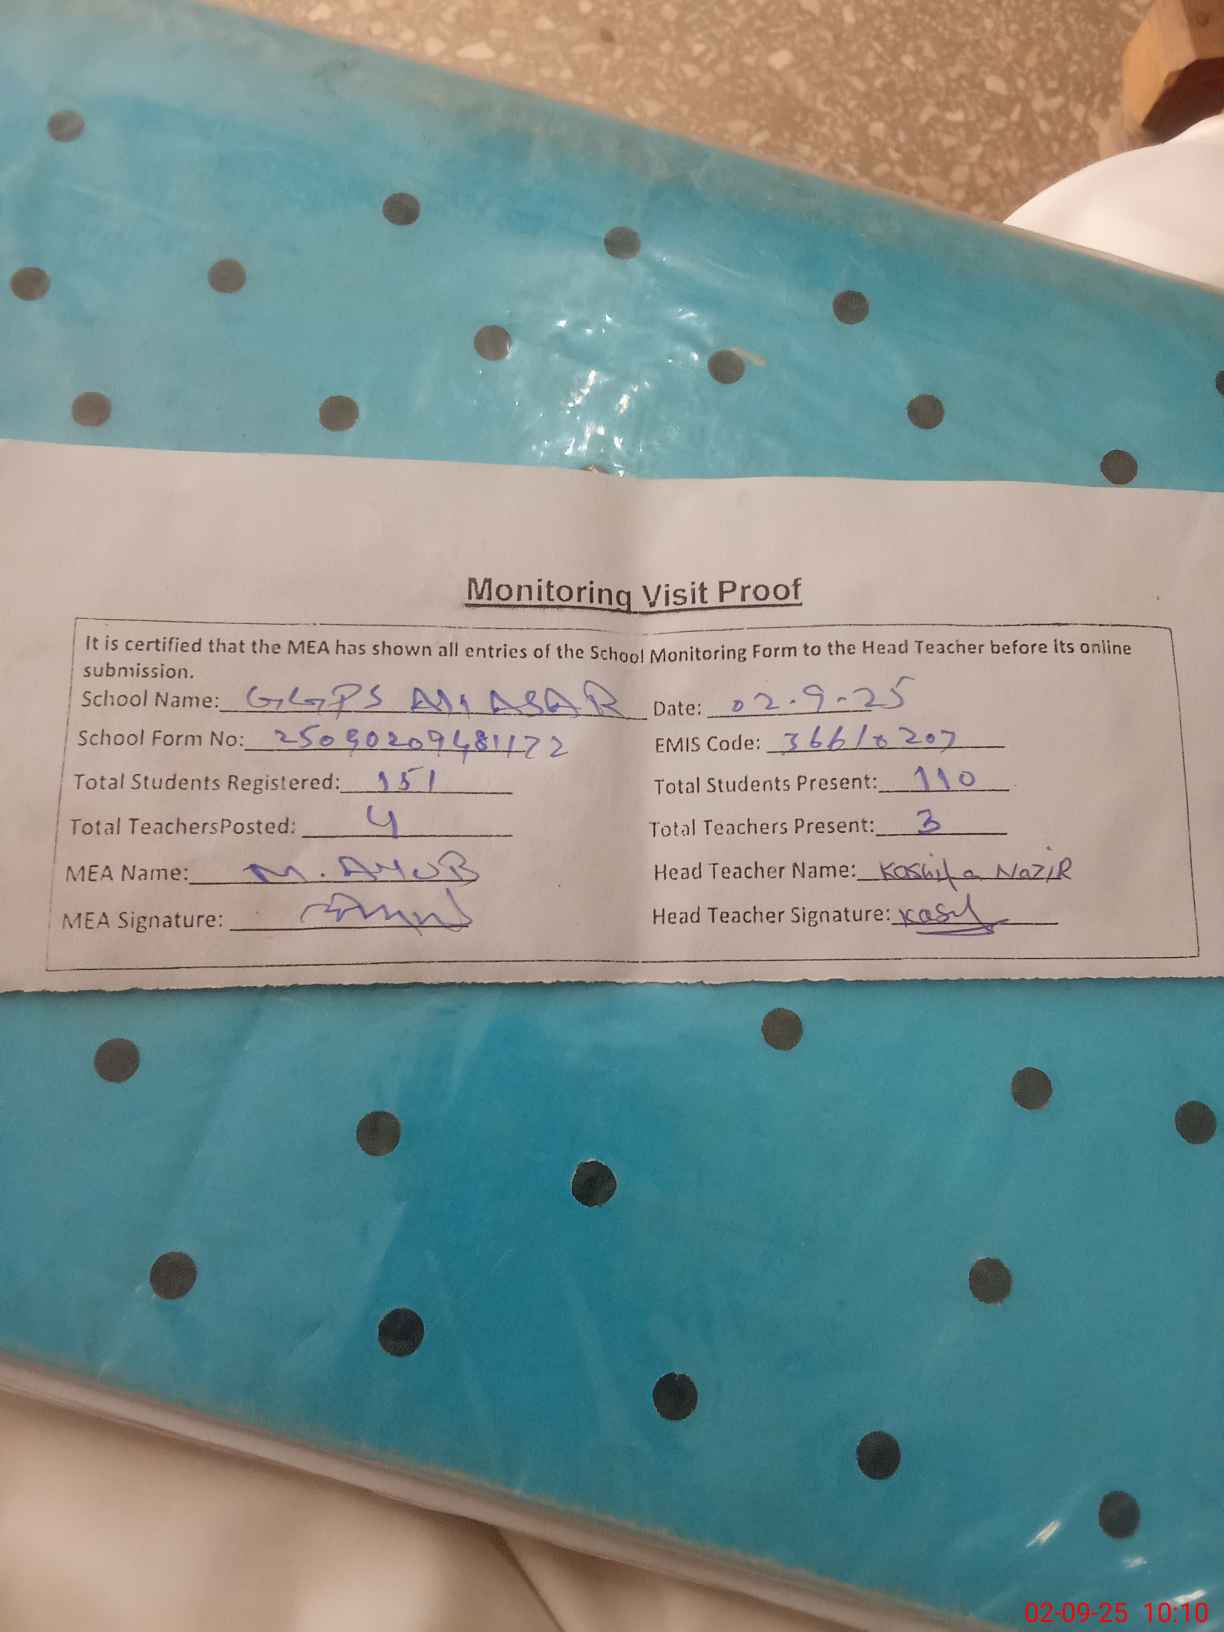 Monitoring Visit Proof
It is certified that the MEA has shown all entries of the School Monitoring Form to the Head Teacher before its online
submission.
School Name: GGPS ALI ASAR Date: 02-9-25
School Form No: 25090209481172 EMIS Code: 36610207
Total Students Registered: 151 Total Students Present: 110
Total TeachersPosted: 4 Total Teachers Present: 3
MEA Name: M. AYUB Head Teacher Name: Kashifa NaZIR
MEA Signature: Head Teacher Signature: Kasf
02-09-25 10:10